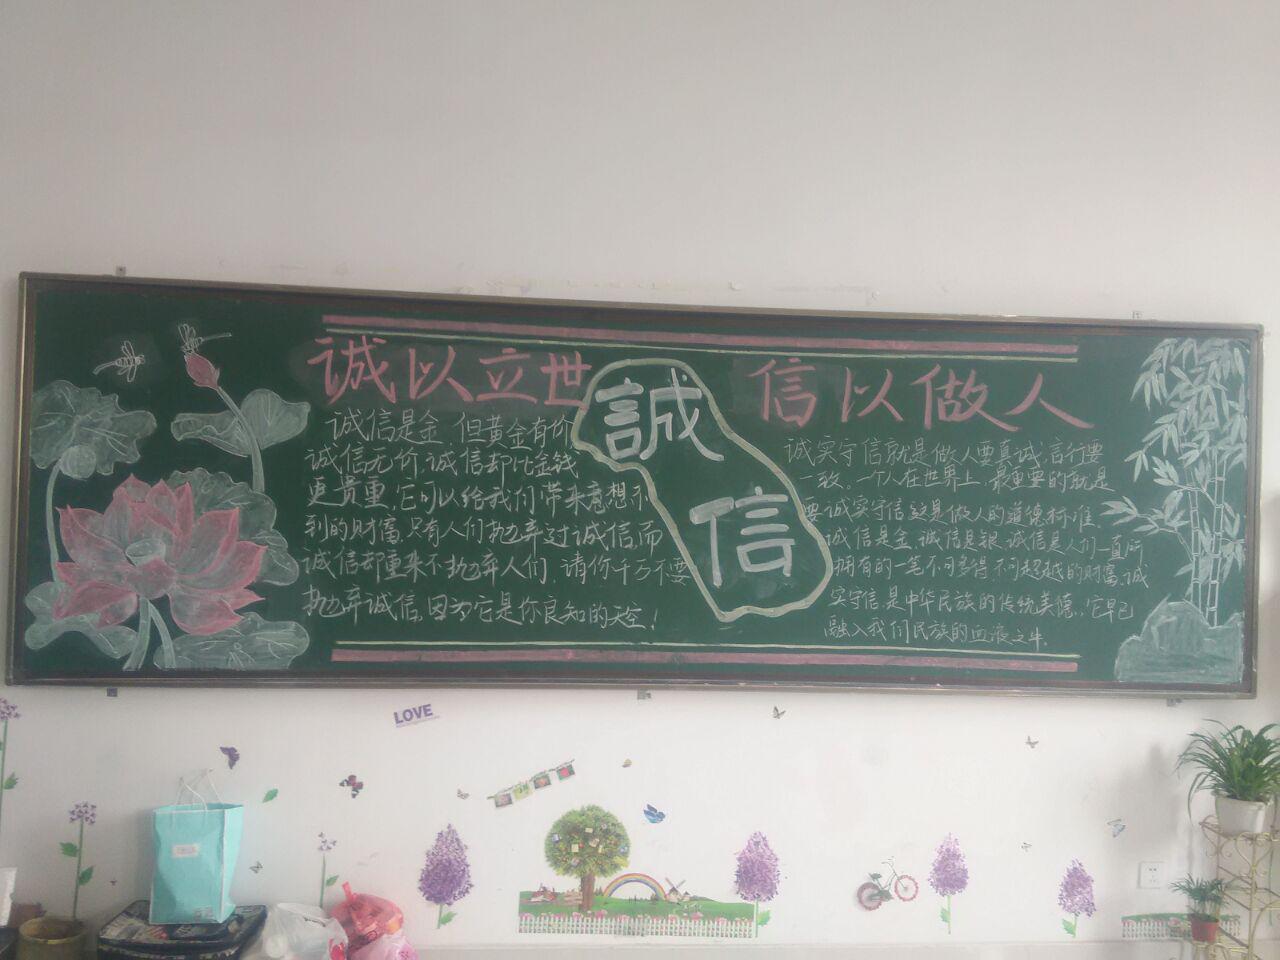 诚以立世
誠
信
信以做人
诚信是金,但黄金有价
诚信无价,诚信却比金钱
更贵重,它可以给我们带来意想不
到的财富,只有人们抛弃过诚信,而
诚信却重来不抛弃人们,请你千万不要
抛弃诚信,因为它是你良知的天空!
诚实守信就是做人要真诚,言行要
一致。一个人在世界上,最重要的就是
要诚实守信,这是做人的道德标准,
诚信是金,诚信是银,诚信是人们一直所
拥有的一笔不可多得,不可超越的财富,诚
实守信,是中华民族的传统美德,它早已
融入我们民族的血液之中。
LOVE